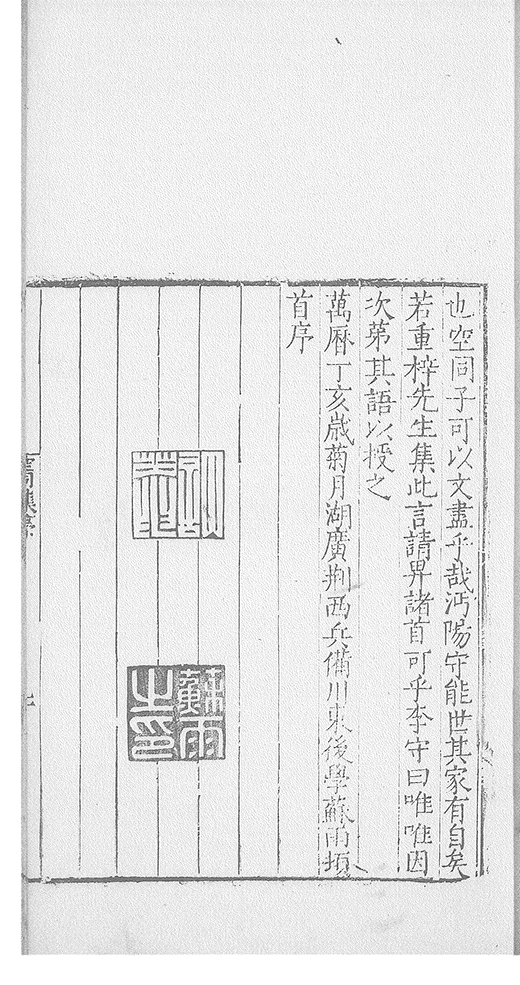 也空同子可以文盡乎哉沔陽守能世其家有自矣
若重梓先生集此言請畀諸首可乎李守曰唯唯因
次第其語以授之
萬曆丁亥歲菊月湖廣荆西兵備川東後學蘇雨頓
首序
蘇雨之印